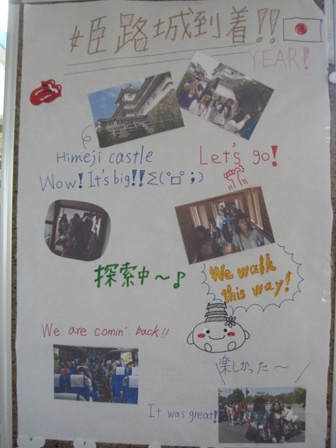 姫路城到着!!
YEAR!
Himeji castle
Let's go!
Wow! It's big!! Σ(°□°;)
探索中〜♪
We walk
this way!
We are comin' back!!
楽しかった〜
It was great!